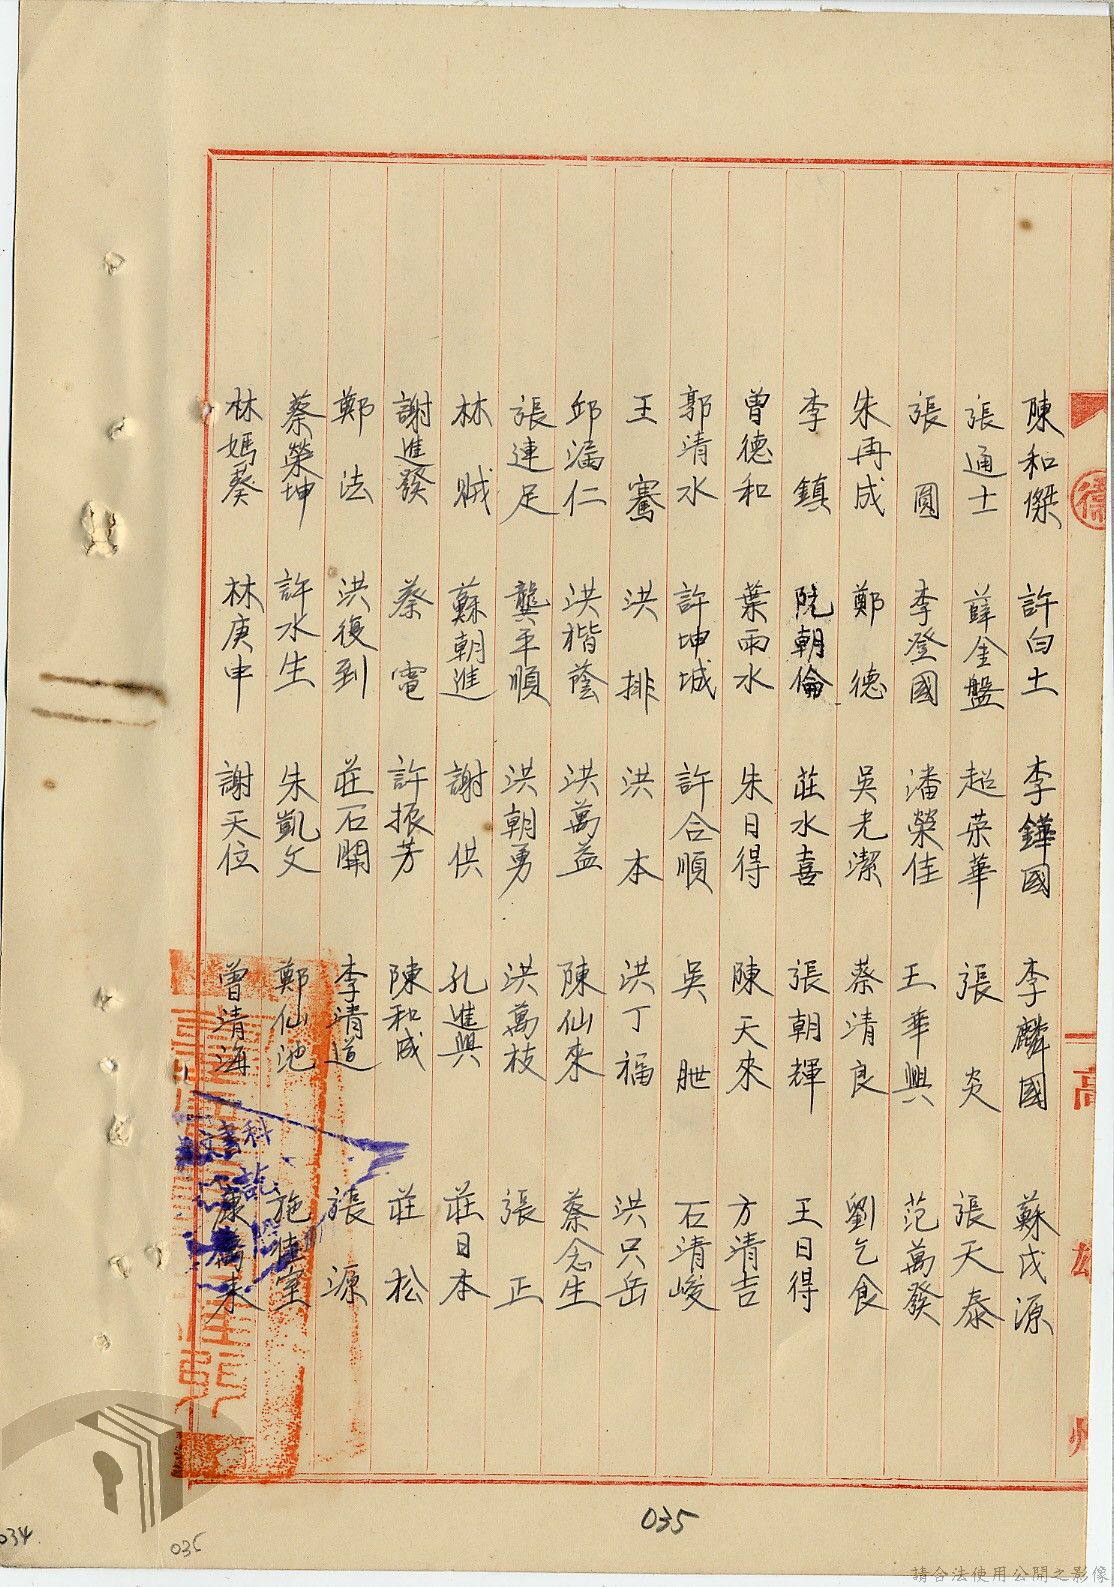 陳和傑 許白土 李鏵國 李麟國 蘇戊源
張通士 薛金盤 超荣華 張炎 張天泰
張圓 李登國 潘榮佳 王華興 范萬發
朱再成 鄭德 吳光潔 蔡清良 劉乞食
李鎮 阮朝倫 莊水喜 張朝輝 王日得
曾德和 葉雨水 朱日得 陳天來 方清吉
郭清水 許坤城 許合順 吳 石清峻
王騫 洪排 洪本 洪丁福 洪只岳
邱滿仁 洪楷蔭 洪萬益 陳仙來 蔡念生
張連足 龔平順 洪朝勇 洪萬枝 張正
林賊 蘇朝進 謝供 孔進興 莊日本
謝進發 蔡電 許振芳 陳和成 莊松
鄭法 洪復到 莊石開 李清道 張源
蔡榮坤 許水生 朱凱文 鄭仙池 施
林媽葵 林庚申 謝天位 曾清海 康
高雄州
035
034
035
請合法使用公開之影像